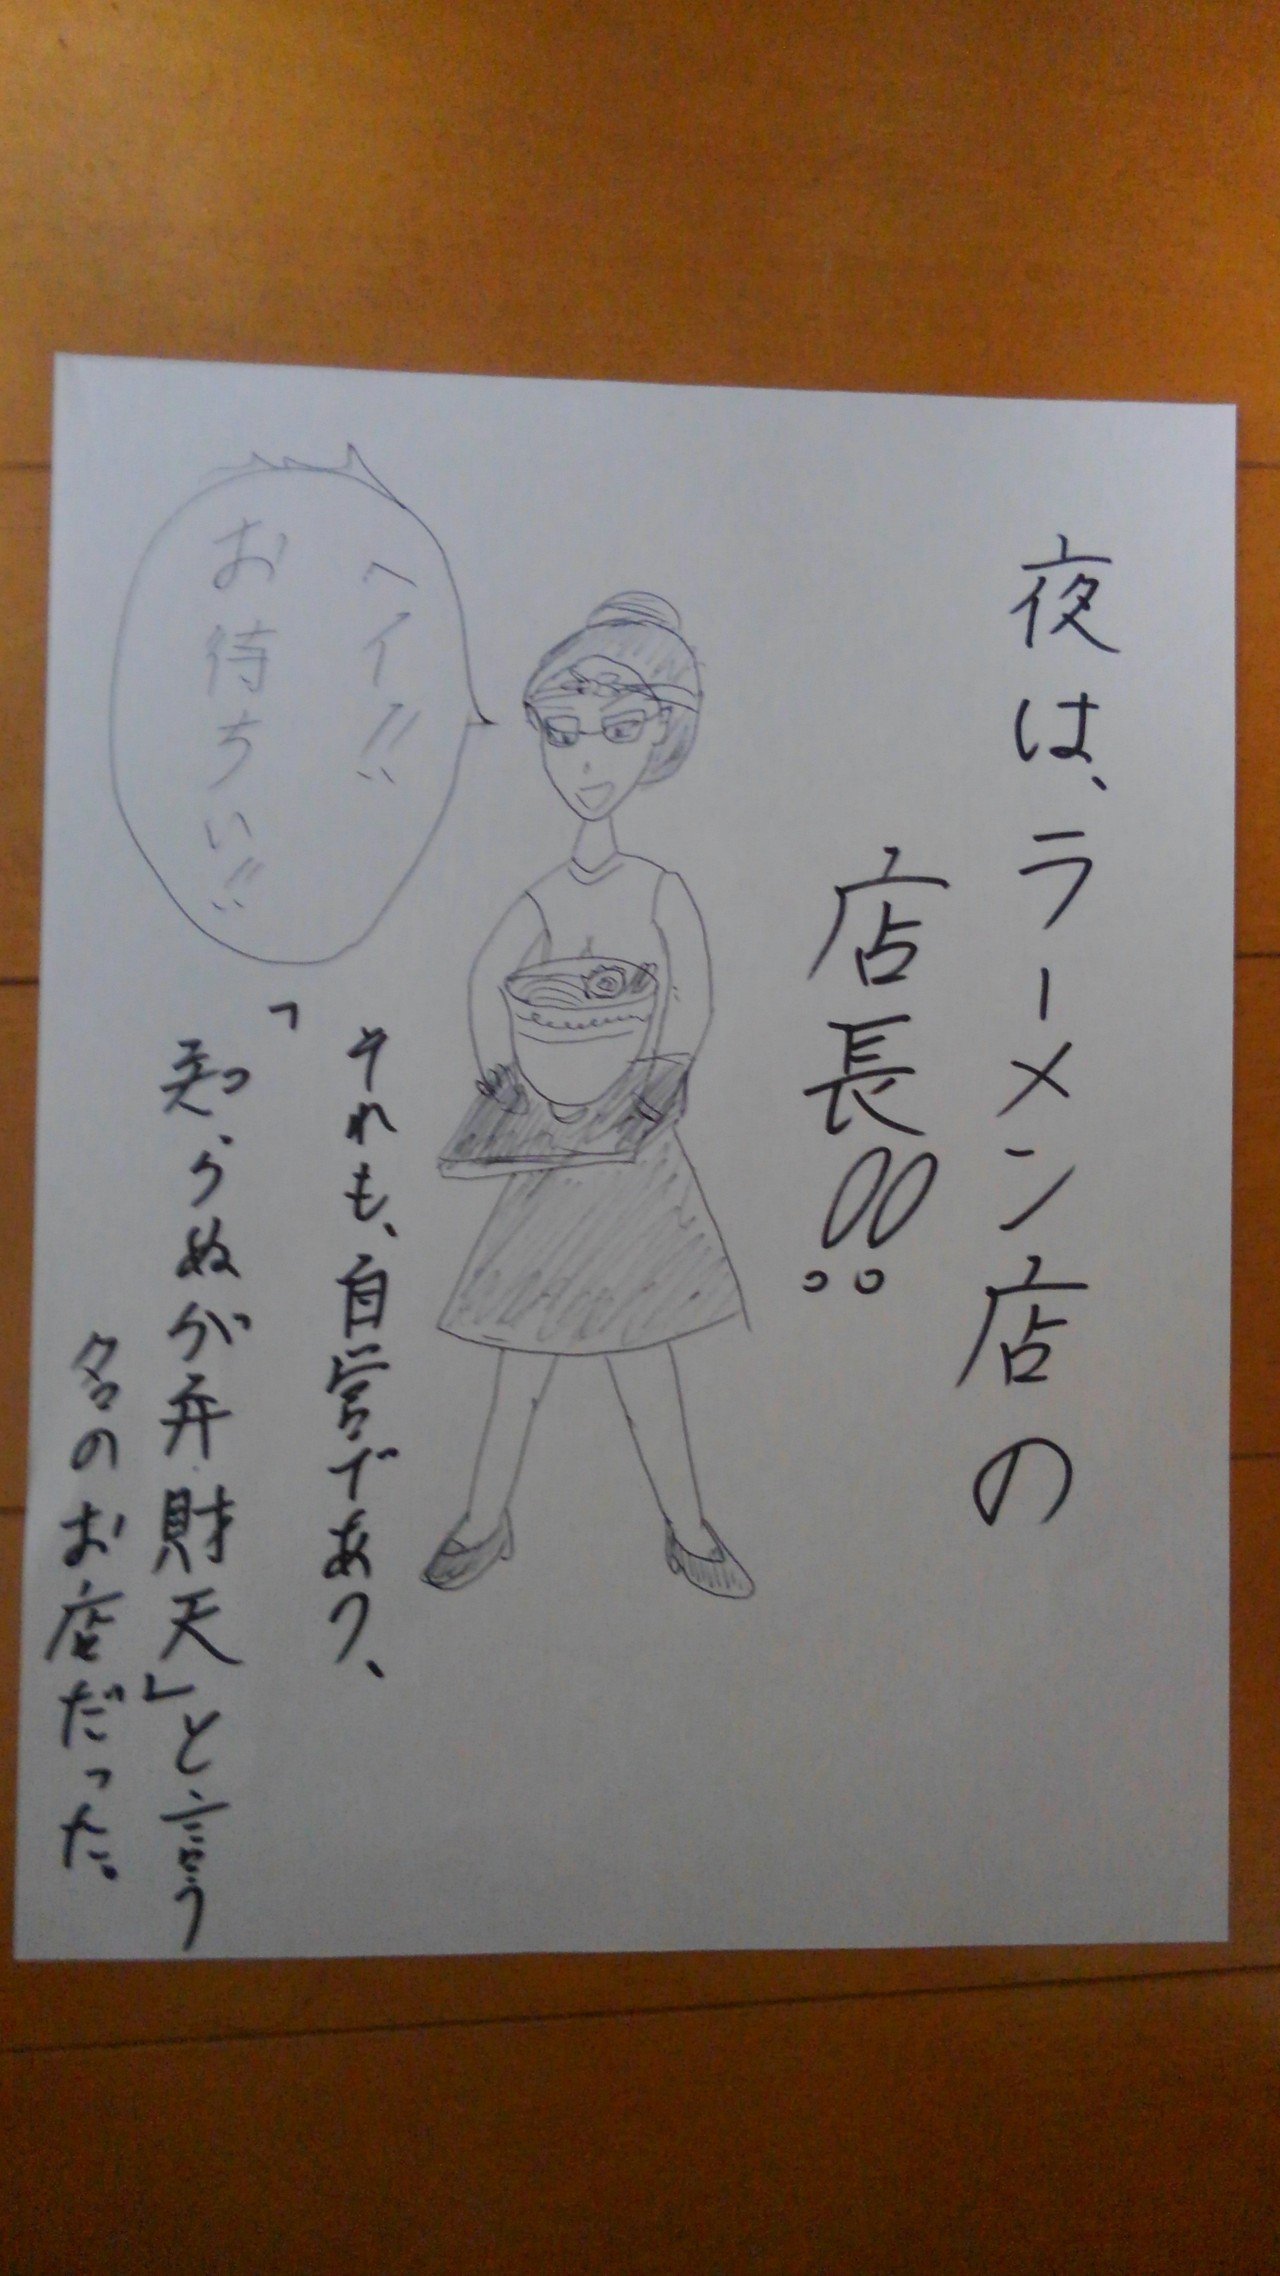 夜は、ラーメン店の
店長!!
ヘイ!!
お待ちい!!
それも、自営であり、
「知らぬが弁財天」と言う
名のお店だった。